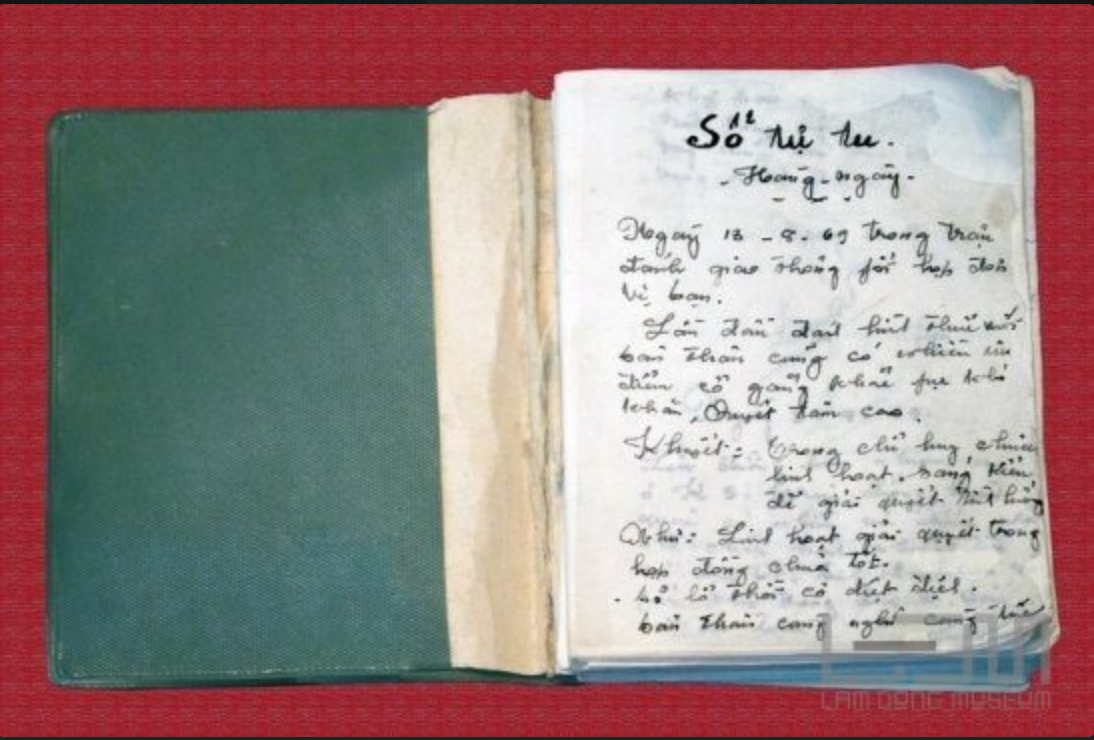 Sổ tự tu.
- Hàng - ngày -
Ngày 13 - 8 - 69 trong trận
đánh giao thông phối hợp đơn
vị bạn.
Lần đầu
bản thân cũng có nhiều ưu
điểm cố gắng khắc phục khó
khăn, Quyết tâm cao.
Khuyết: Trong chỉ huy chưa
linh hoạt, sáng kiến
để giải quyết tình huống
Như: Linh hoạt giải quyết trong
hợp đồng chưa tốt.
- bỏ lỡ thời cơ diệt địch.
bản thân càng nghĩ càng
LAM DONG MUSEUM